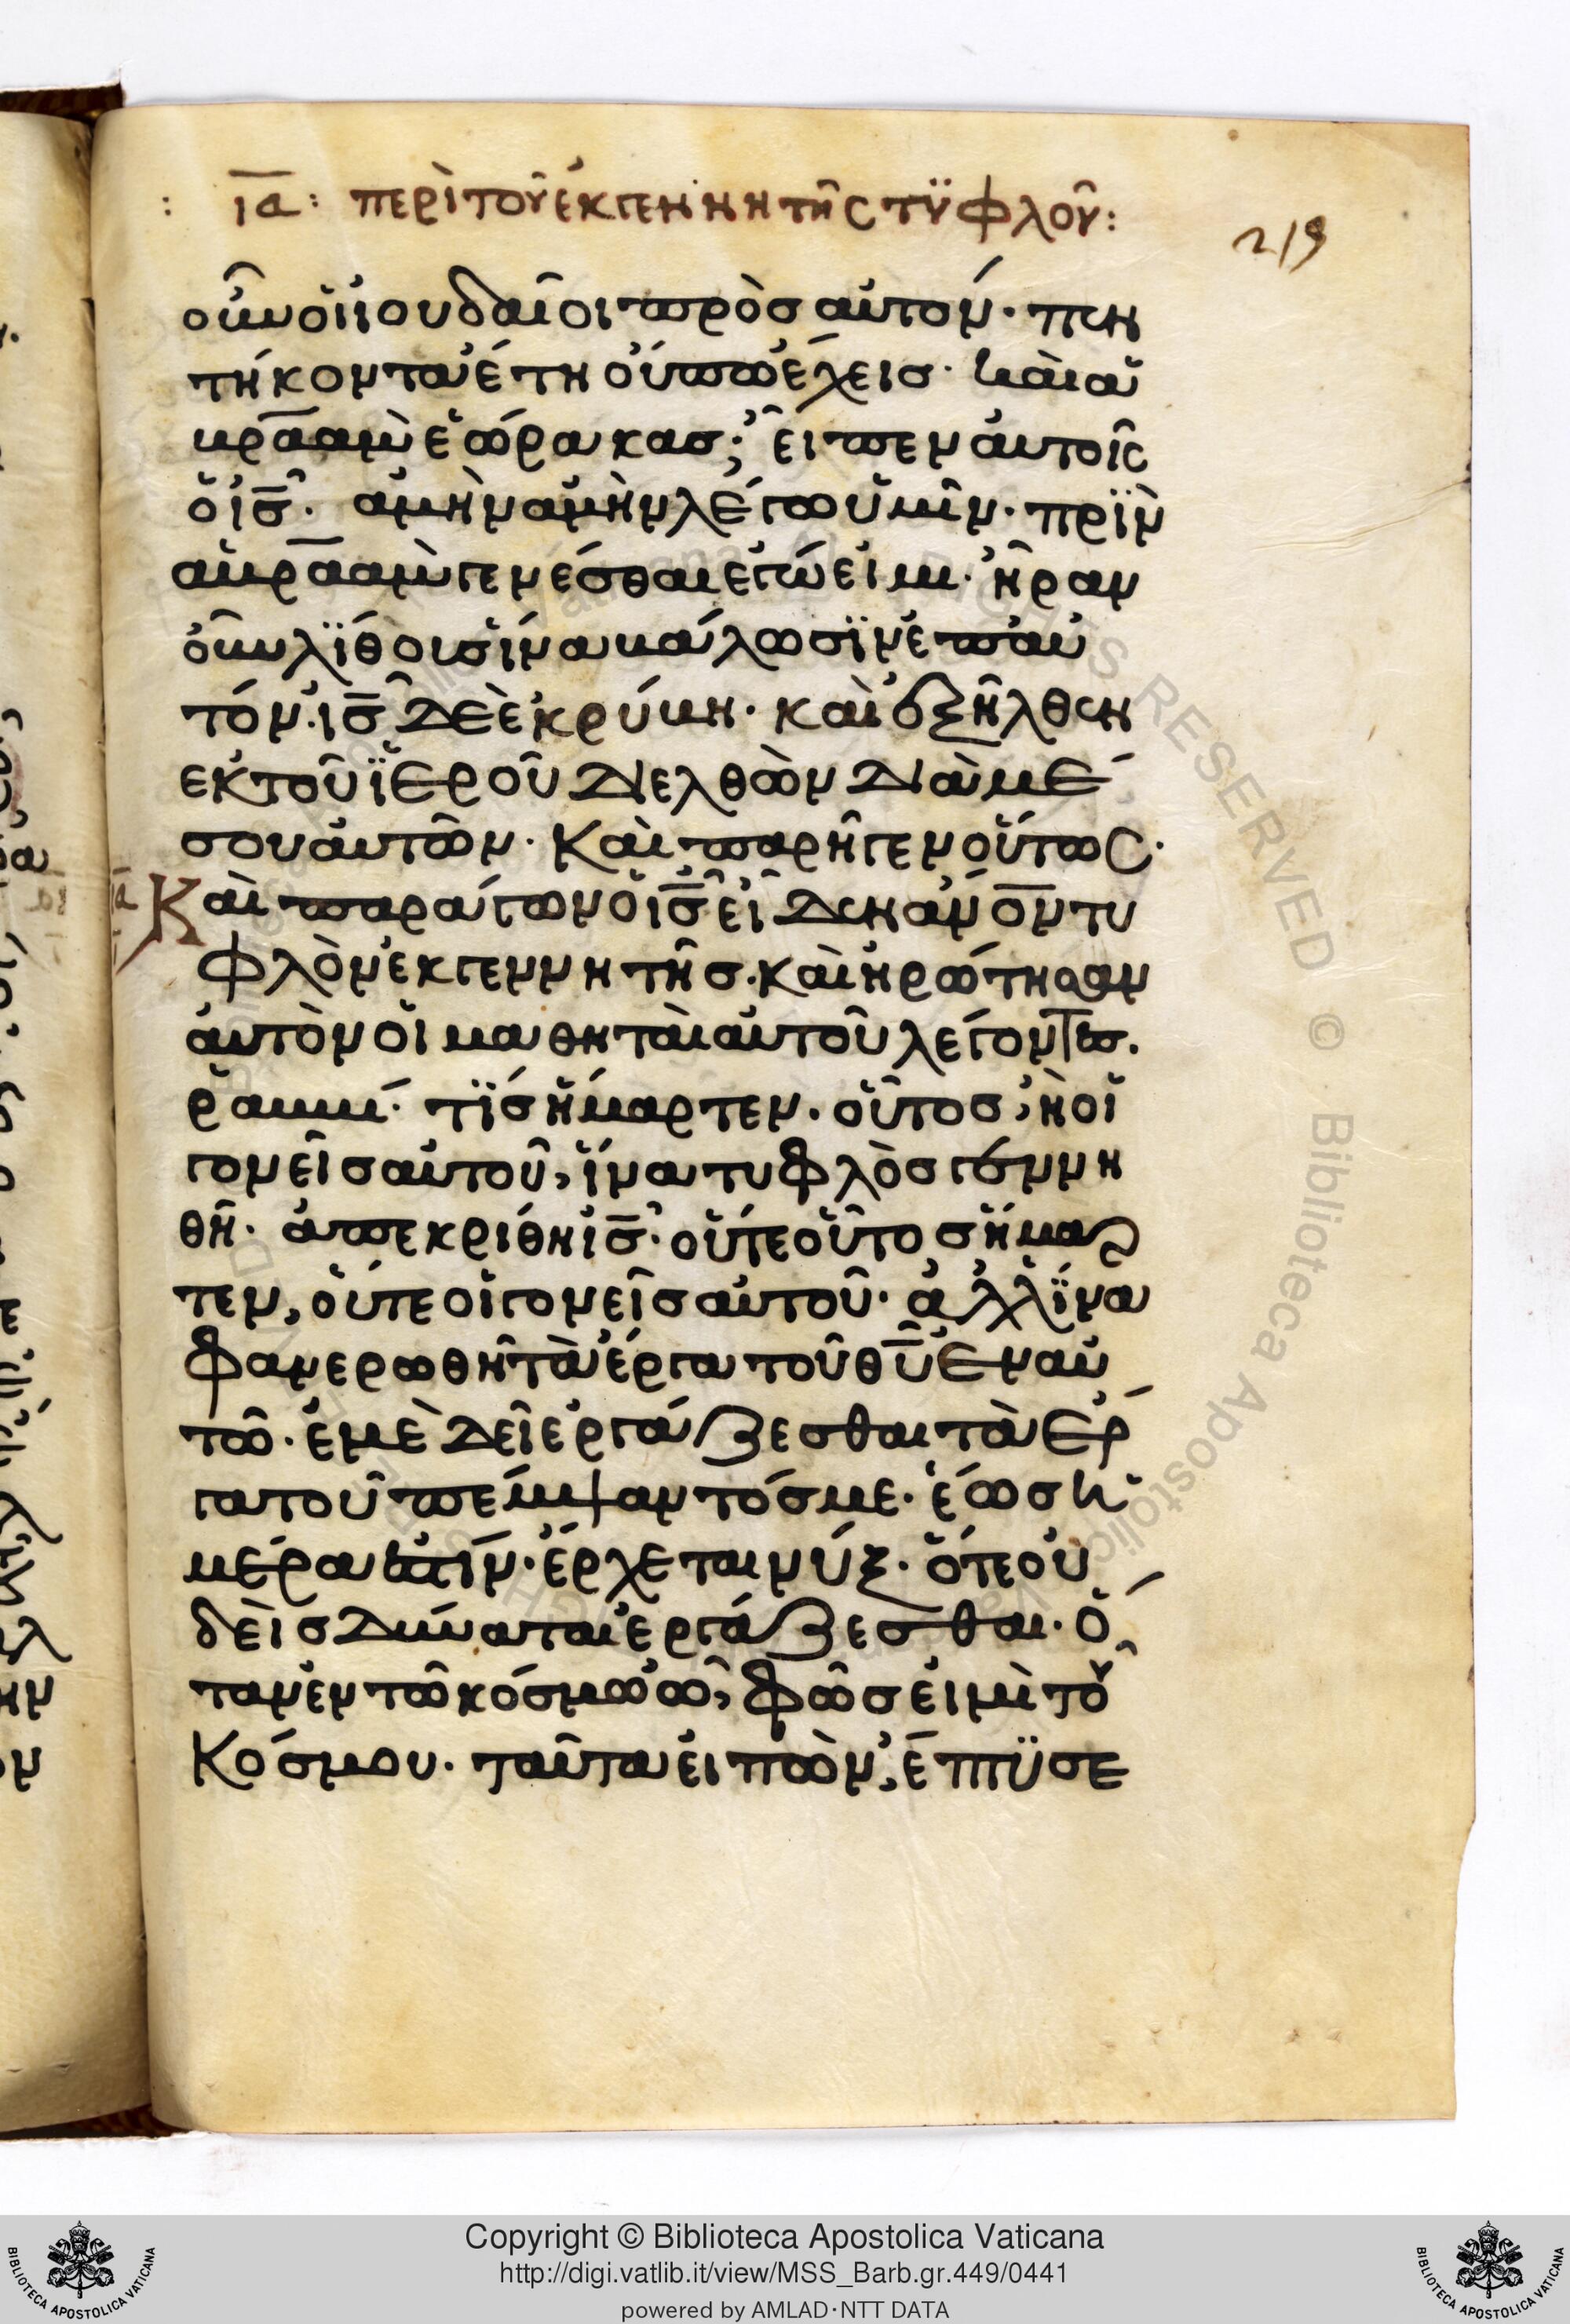 : ιαˉ: περὶ τοῦ ἐκ γεννητῆς τϋφλοῦ:
219
οὖν οἱ ἰουδαῖοι πρὸς αὐτόν· πεν
τήκοντα ἔτη οὔπω ἔχεις· καὶ ἀ
βραὰμ ἑώρακας; εἶπεν αὐτοῖς
ὁ ἰς̅· ἀμὴν ἀμὴν λέγω ὑμῖν· πρϊν
ἀβραὰμ γενέσθαι ἐγώ εἰμι· ἦραν
οὖν λϊθους ἵνα βάλωσϊν ἐπ' αὐ
τόν· ἰς̅ δὲ ἐκρύβη· καὶ ἐξῆλθεν
ἐκ τοῦ ϊεροῦ διελθὼν διὰ μέ
σου αὐτῶν· καὶ παρῆγεν οὕτως·
ια Καὶ παράγων ὁ ἰς̅ εἶδεν ἀνον̅ τυ
φλὸν ἐκ γεννητῆς· καὶ ἠρώτησαν
αὐτὸν οἱ μαθηταὶ αὐτοῦ λέγοντες·
ῥαββί· τϊς ἥμαρτεν· οὗτος, ἢ οἱ
γονεῖς αὐτοῦ, ἵνα τυφλὸς γεννη
θῆ· ἀπεκρίθη ἰς̅· οὔτε οὗτος ἥμαρ
τεν, οὔτε οἱ γονεῖς αὐτοῦ· ἀλλ' ϊνα
φανερωθῆ τὰ ἔργα τοῦ θυ̅ ἐν αὐ
τῶ· ἐμὲ δεῖ ἐργάζεσθαι τὰ ἔρ
γα τοῦ πέμψαντός με· ἕως ἡ
μέρα ἐστίν· ἔρχεται νύξ· ὅτε οὐ
δεὶς δύναται ἐργάζεσθαι· ὅ
ταν ἐν τῶ κόσμω ὦ, φῶς εἰμὶ τοῦ
κόσμου· ταῦτα εἰπὼν, ἔπτϋσε
Copyright © Biblioteca Apostolica Vaticana
http://digi.vatlib.it/view/MSS_Barb.gr.449/0441
powered by AMLAD·NTT DATA
BIBLIOTECA APOSTOLICA VATICANA
BIBLIOTECA APOSTOLICA VATICANA